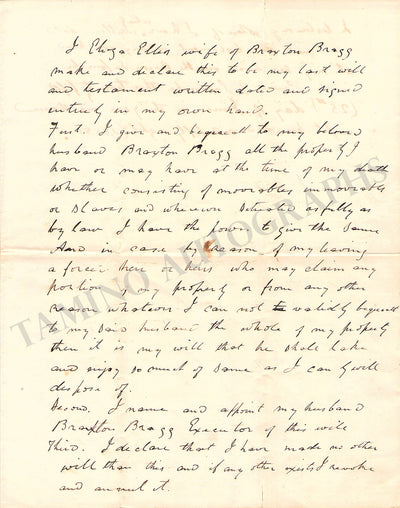 I Eliza Ellis wife of Braxton Bragg
make and declare this to be my last will
and testament written dated and signed
intirely in my own hand.
First. I give and bequeath to my beloved
husband Braxton Bragg all the property I
have or may have at the time of my death
whether consisting of moveables immoveables
or Slaves and wherever situated as fully as
by law I have the power to give the same
And in case by reason of my leaving
a forced heir or heirs who may claim any
portion of my property or from any other
reason whatever I can not validly bequeath
to my said husband the whole of my property
then it is my will that he shall take
and enjoy so much of same as I can by will
dispose of.
Second. I name and appoint my husband
Braxton Bragg Executor of this will
Third. I declare that I have made no other
will than this and if any other exists I revoke
and annul it.
TAMINO AUTOGRAPHS